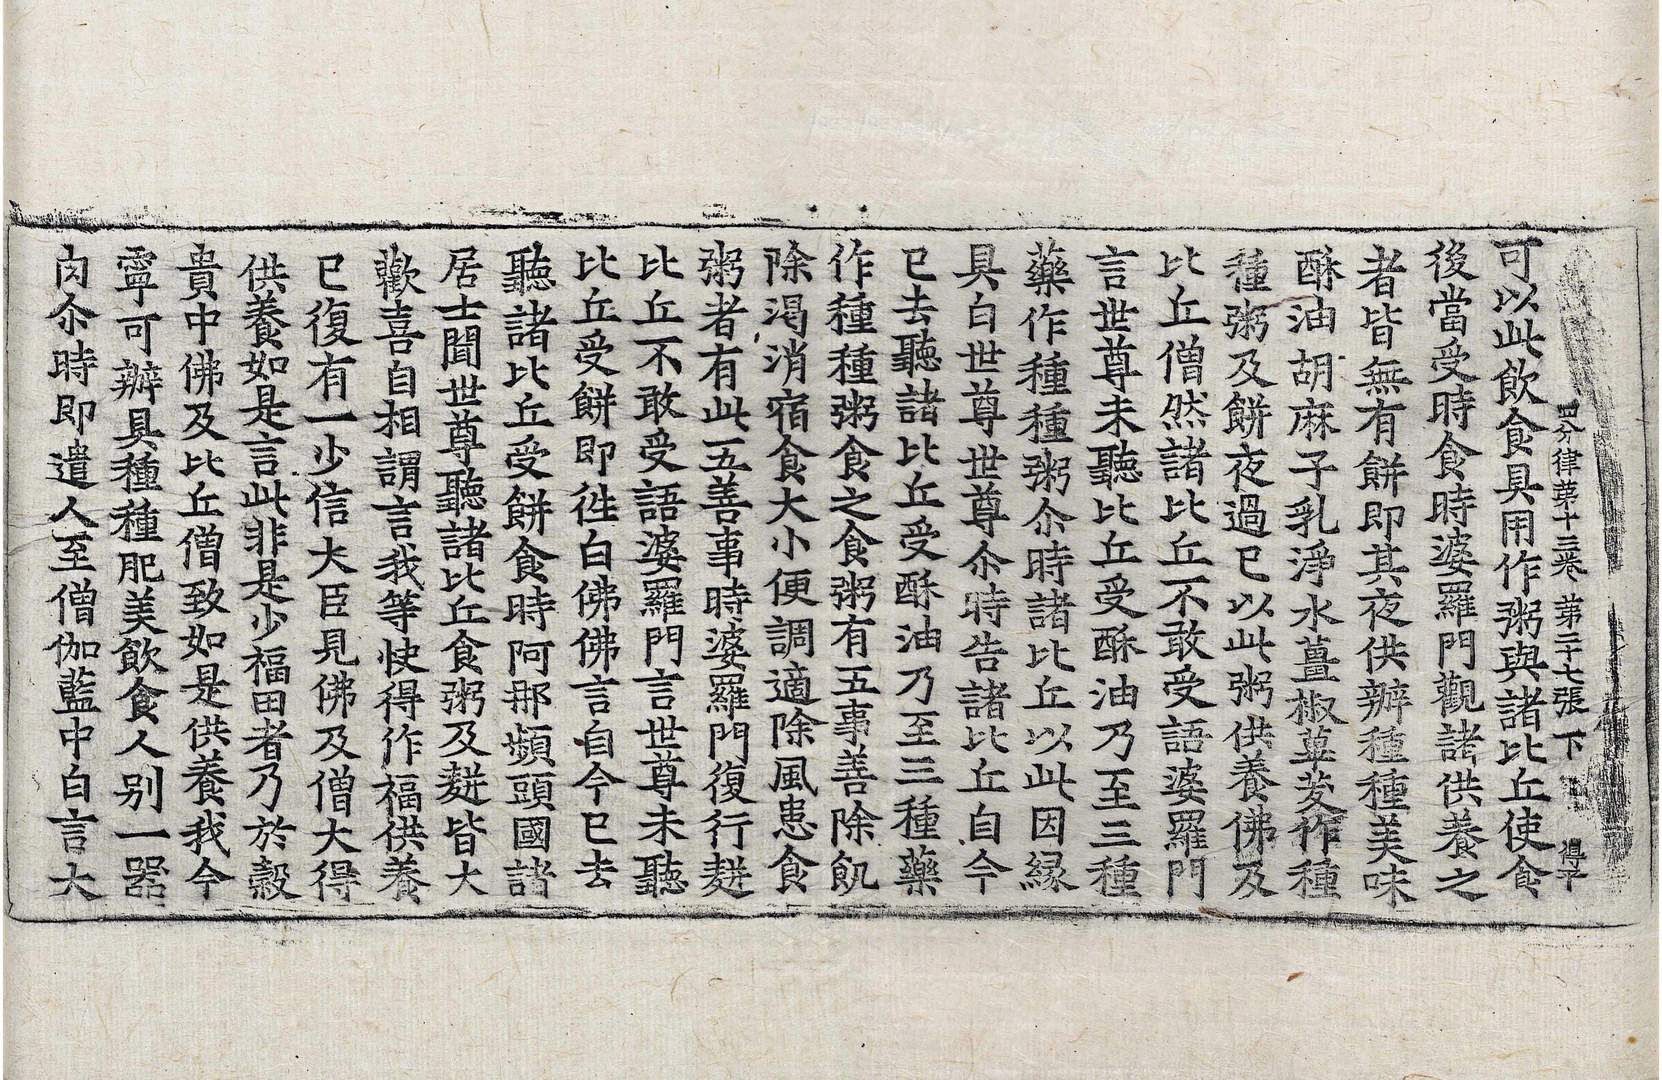 四分律第十三卷 第二十七張 下 得平
可以此飲食具用作粥與諸比丘使食
後當受時食時婆羅門觀諸供養之
者皆無有餅即其夜供辦種種美味
酥油胡麻子乳淨水薑椒蓽茇作種
種粥及餅夜過已以此粥供養佛及
比丘僧然諸比丘不敢受語婆羅門
言世尊未聽比丘受酥油乃至三種
藥作種種粥尒時諸比丘以此因緣
具白世尊世尊尒時告諸比丘自今
已去聽諸比丘受酥油乃至三種藥
作種種粥食之食粥有五事善除飢
除渴消宿食大小便調適除風患食
粥者有此五善事時婆羅門復行麨
比丘不敢受語婆羅門言世尊未聽
比丘受餅即徃白佛佛言自今已去
聽諸比丘受餅食時阿那頻頭國諸
居士聞世尊聽諸比丘食粥及麨皆大
歡喜自相謂言我等快得作福供養
已復有一少信大臣見佛及僧大得
供養如是言此非是少福田者乃於穀
貴中佛及比丘僧致如是供養我今
寧可辦具種種肥美飲食人別一器
肉尒時即遣人至僧伽藍中白言大